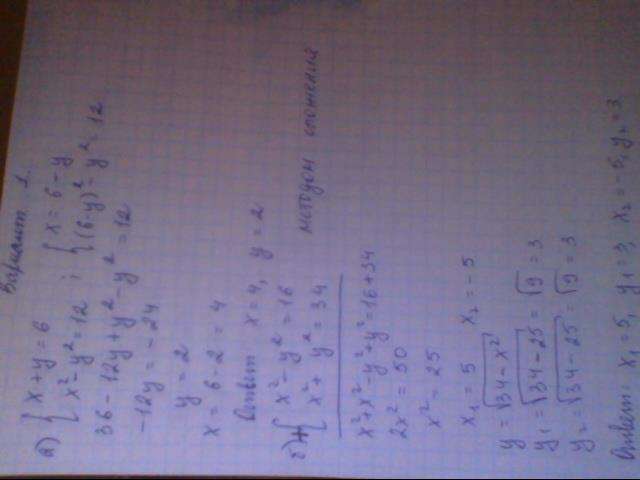 Вариант 1.
а) { x + y = 6 ; { x = 6 - y
x² - y² = 12 (6-y)² - y² = 12
36 - 12y + y² - y² = 12
-12y = -24
y = 2
x = 6 - 2 = 4
Ответ x = 4, y = 2
б) + { x² - y² = 16 методом сложений
x² + y² = 34
x² + x² - y² + y² = 16 + 34
2x² = 50
x² = 25
x₁ = 5 x₂ = -5
y = √34 - x²
y₁ = √34 - 25 = √9 = 3
y₂ = √34 - 25 = √9 = 3
Ответ: x₁ = 5, y₁ = 3, x₂ = -5, y₂ = 3